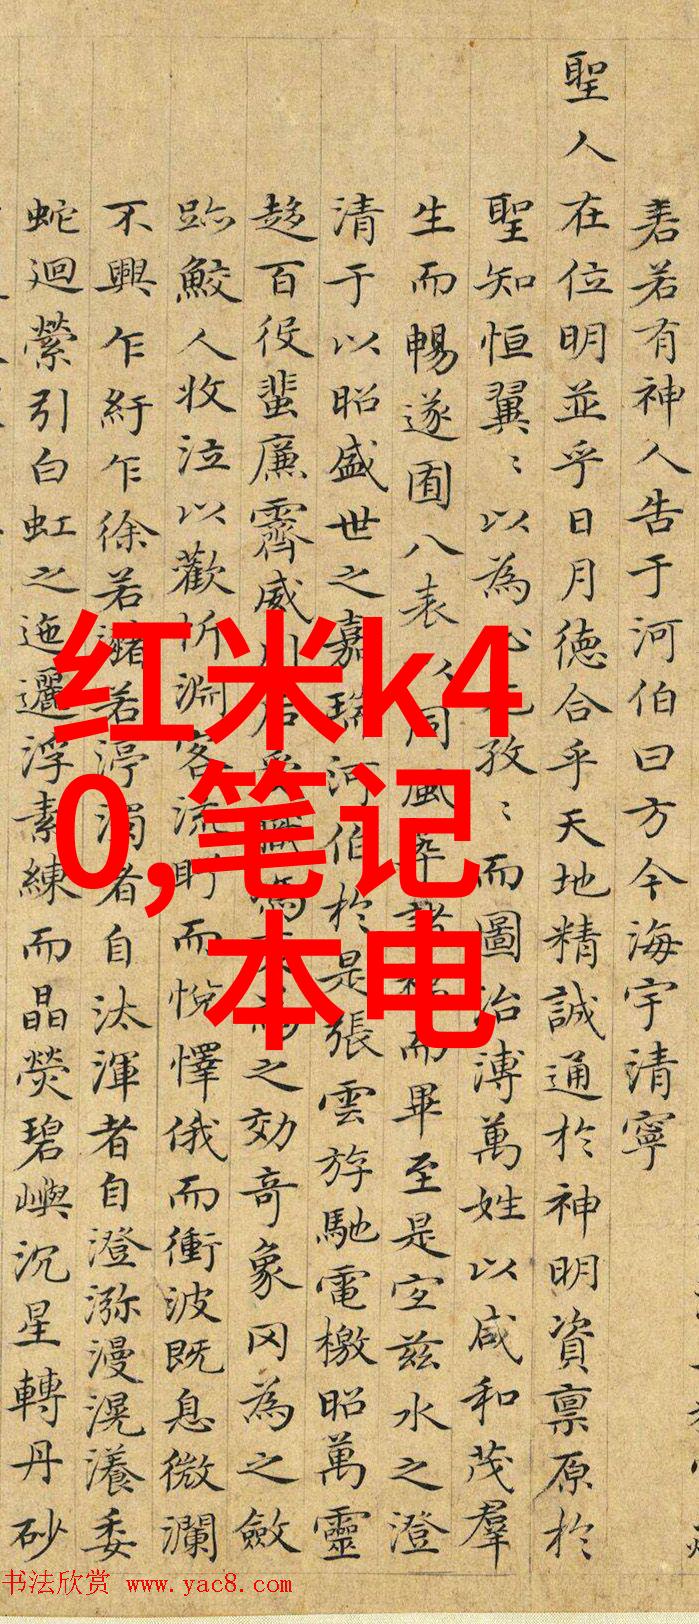 聖人
善若有神人告于河伯曰方今海宇清寧
在位明並乎日月德合乎天地精誠通於神明資稟原於
聖知恒翼〻以為心孜〻而圖治溥萬姓以咸和茂羣
生而暢遂囿八表以同風而畢至是宜茲水之澄
清于以昭盛世之嘉瑞河伯於是張雲旂馳電檄昭萬靈
趍百役蜚廉霽威川后之効奇象冈為之斂
跡鮫人收泣以歡忻淵客流眄而悅懌俄而衝波既息微瀾
不興乍紆乍徐若瀦若渟濁者自汰渾者自澄瀰漫滉瀁委
蛇迴縈引白虹之迤邐浮素練而晶熒碧嶼沉星轉丹砂
红米k4
0,笔记
本电
书法欣赏 www.yac8.com